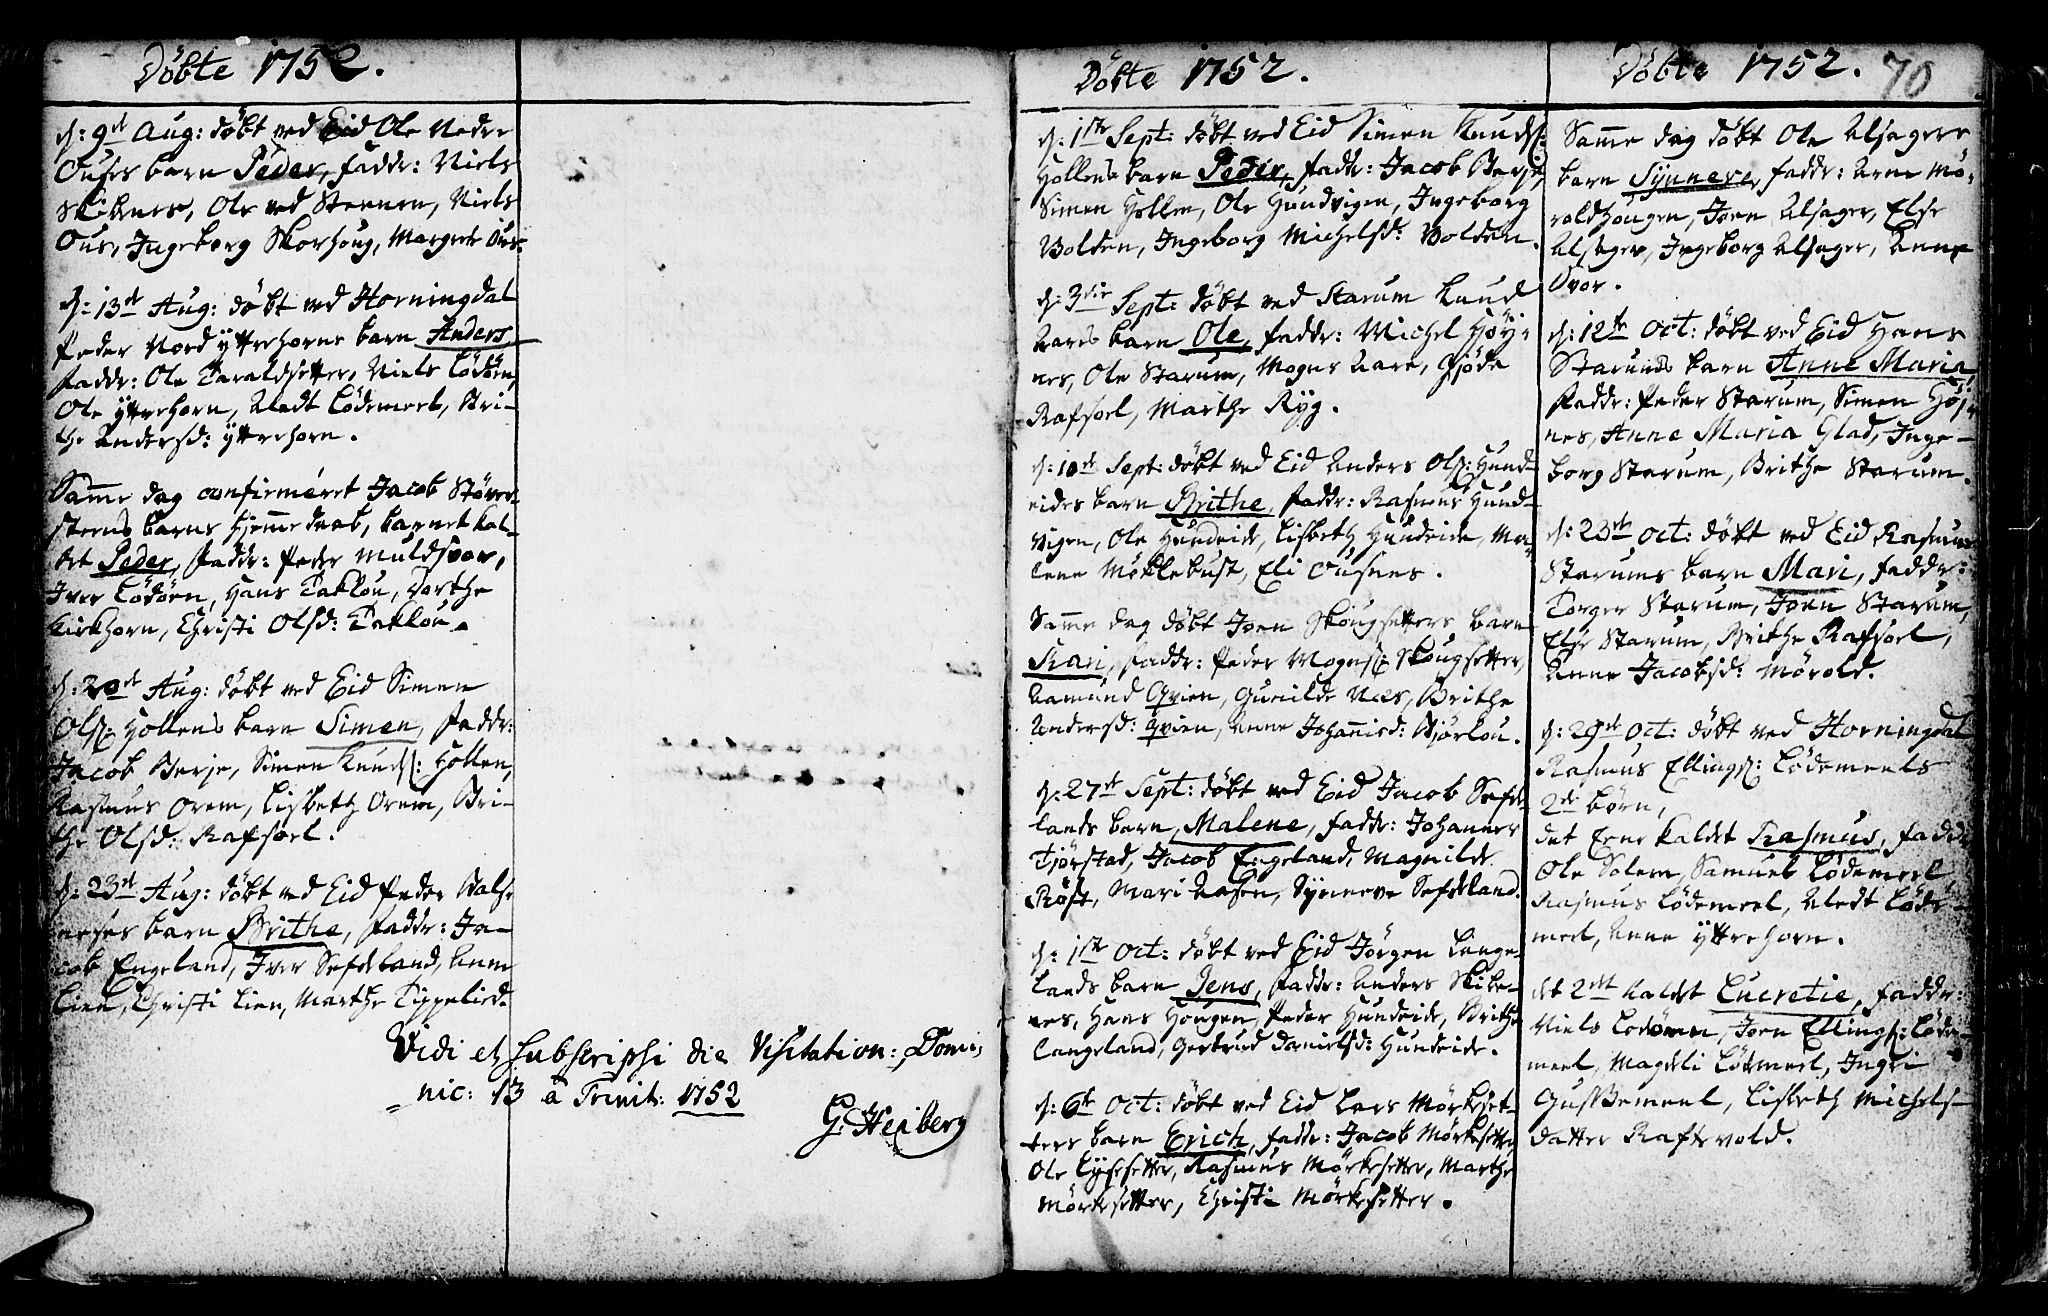 Döbte 1752.
d: 9de Aug: döbt ved Eid Ole Nedre
Ouses barn Peder, faddr: Niels
Skibenes, Ole ved Steenen, Niels
Ous, Ingeborg Skorhoug, Margrete Ous.
d: 13de Aug: döbt ved Horningdal
Peder Nord yttrehorns barn Anders
faddr: Ole Taraldsetter, Niels Lödöen,
Ole yttrehorn, Aledt Lödemeel, Bri-
the Andersd: yttrehorn.
Samme dag confirmeret Jacob Störe-
steens barns hjemmedaab, barnet kal-
det Peder, faddr: Peder Muldsvor,
Iver Lödöen, Hans Taklou, Dorthe
Kirkhorn, Christi Olsd: Taklou.
d: 20de Aug: döbt ved Eid Simen
Ols: Hollens barn Simen, faddr:
Jacob Berje, Simen Knuds: Hollen,
Rasmus Orem, Lisbeth Orem, Bri-
the Olsd: Rafsoel.
d: 23de Aug: döbt ved Eid Peder Hals-
neses barn Brithe, faddr: Ja-
cob Engeland, Iver Sefdeland, Anne
Lien, Christi Lien, Marthe Tippelied.
Vidi et subscripsi die Visitation: Domi-
nic: 13 a Trinit: 1752
G. Heiberg
Döbte 1752.
d: 1ste Sept: döbt ved Eid Simen Knuds:
Hollens barn Peder, faddr: Jacob Berje,
Simen Hollen, Ole Hundvigen, Ingeborg
Bolden, Ingeborg Michelsd: Bolden.
d: 3die Sept: döbt ved Starum Knud
Aares barn Ole, faddr: Michel Höij-
nes, Ole Starum, Mogns Aare, Gjöde
Rafsoel, Marthe Ryg.
d: 10de Sept: döbt ved Eid Anders Ols: Hund-
eides barn Brithe, faddr: Rasmus Hund-
vigen, Ole Hundeide, Lisbeth Hundeide, Ma-
lene Möklebust, Eli Ousnes.
Samme dag döbt Joen Skougsetters barn
Kari, faddr: Peder Mogns: Skougsetter,
Aamund Qvien, Gunilde Nees, Brithe
Andersd: Qvien, Anne Johannisd: Björlou.
d: 27de Sept: döbt ved Eid Jacob Sefde-
lands barn Malene, faddr: Johannes
Tjörstad, Jacob Engeland, Magnilde
Röst, Mari Aasen, Synneve Sefdeland.
d: 1ste Oct: döbt ved Eid Jörgen Lange-
lands barn Jens, faddr: Anders Skibe-
nes, Hans Hougen, Peder Hundeide, Brithe
Langeland, Gertrud Danielsd: Hundeide.
d: 6te Oct: döbt ved Eid Lars Mörkeset-
ters barn Erich, faddr: Jacob Mörkesetter,
Ole Lysesetter, Rasmus Mörkesetter, Marthe
Mörkesetter, Christi Mörkesetter.
Döbte 1752. 70
Samme dag döbt Ole Alsagers
barn Synneve, faddr: Arne Mö-
roldhougen, Joen Alsager, Else
Alsager, Ingeborg Alsager, Anne
Dvor.
d: 12te Oct: döbt ved Eid Hans
Starums barn Anne Maria
faddr: Peder Starum, Simen Höj-
nes, Anne Maria Glad, Inge-
borg Starum, Brithe Starum.
d: 23de Oct: döbt ved Eid Rasmus
Starums barn Mari, faddr:
Torger Starum, Joen Starum,
Else Starum, Brithe Rafsoel,
Anne Jacobsd: Mörold.
d: 29de Oct: döbt ved Horningdal
Rasmus Ellings: Lödemeels
2de börn,
det Eene kaldet Rasmus, faddr:
Ole Solem, Samuel Lödemeel
Rasmus Lödemeel, Aledt Löde-
meel, Anne yttrehorn.
det 2det kaldet Lucretie, faddr:
Niels Lodöen, Joen Ellings: Löde-
meel, Magdeli Lödemeel, Ingri
Gusdemeel, Lisbeth Michels-
datter Raftevold.